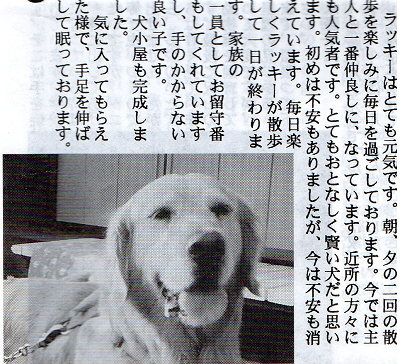 ラッキーはとても元気です。朝、夕の二回の散
歩を楽しみに毎日を過ごしております。今では主
人と一番仲良しに、なっています。近所の方々に
も人気者です。とてもおとなしく賢い犬だと思い
ます。初めは不安もありましたが、今は不安も消
えています。毎日楽
しくラッキーが散歩
して一日が終わりま
す。家族の
一員としてお留守番
もしてくれています
し、手のかからない
良い子です。
犬小屋も完成しま
した。
気に入ってもらえ
た様で、手足を伸ば
して眠っております。